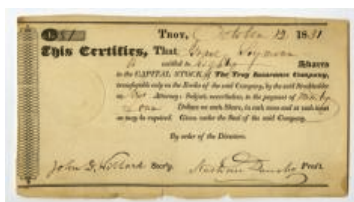 Troy, October 12 1831
This Certifies, That Isaac
is entitled to Eighty Shares
in the CAPITAL STOCK of The Troy Insurance Company,
transferable only on the Books of the said Company, by the said Stockholder
or his Attorney: Subject, nevertheless, to the payment of Ninety
one Dollars on each Share, in such sums and at such times
as may be required. Given under the Seal of the said Company.
By order of the Directors.
John Secr'y. Nathan Presi't.